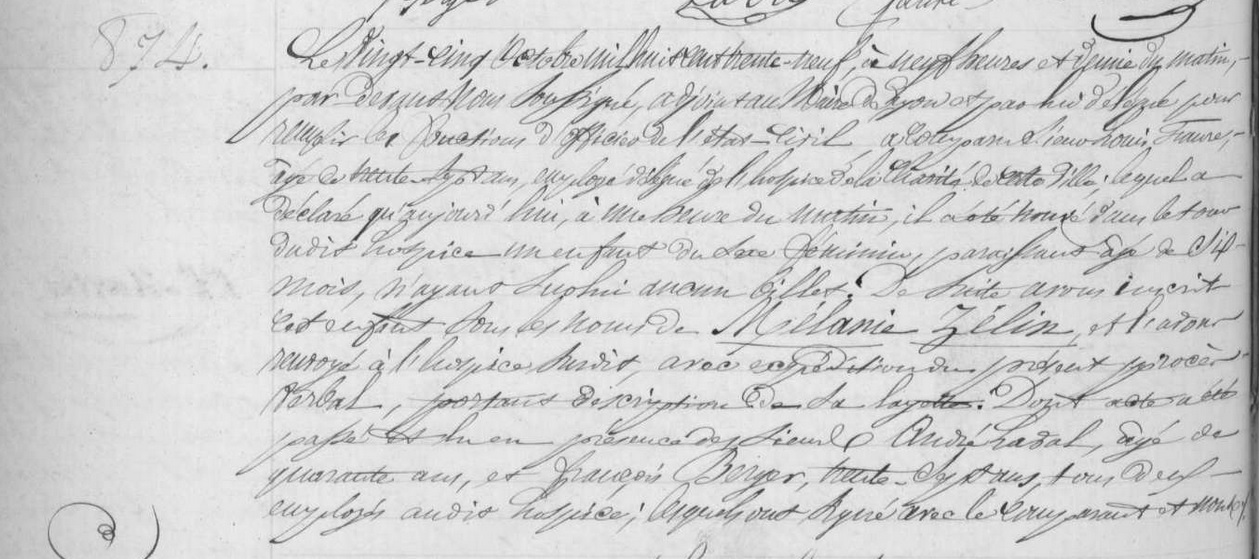 874.
Le Vingt-cinq Octobre mil huit cent trente-neuf, à neuf heures et demie du matin,
par devant Nous Soussigné, adjoint au Maire de Lyon et par lui délégué pour
remplir les fonctions d'Officier de l'état-Civil a comparu Sieur Louis Faure,
âgé de trente-sept ans, employé délégué de l'hospice de la Charité de cette Ville; lequel a
déclaré qu'aujourd'hui, à une heure du matin, il a été trouvé dans le tour
dudit hospice un enfant du Sexe féminin, paraissant âgé de Six
mois, n'ayant sur lui aucun billet. De Suite avons inscrit
cet enfant sous les noms de Mélanie Zélin, et l'avons
renvoyé à l'hospice susdit, avec expédition du présent procès-
Verbal, portant description de sa layette. Dont acte a été
passé et lu en présence des Sieurs André Laval, âgé de
quarante ans, et françois Berger, trente-sept ans, tous deux
employés audit hospice; lesquels ont signé avec le comparant et nous